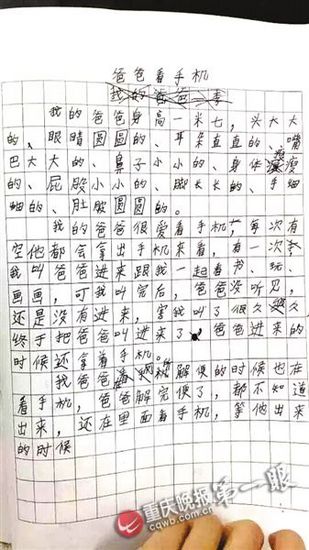 爸爸看手机
我的爸爸一李
我的爸爸身高一米七,头大大
的、眼睛圆圆的、耳朵直直的、嘴
巴大大的、鼻子小小的、身体瘦瘦
的、屁股小小的、脚长长的、手细
细的、肚脸圆圆的。
我的爸爸很爱看手机,每次有
空他都会拿出手机来看,有一次
我叫爸爸进来跟我一起看书、玩、
画画,可我叫完后,爸爸没听见,
还是没有进来,害我叫了很久
终于把爸爸叫进来了 爸爸进来的
时候还拿着手机。
我爸爸解便的时候也在
看手机,爸爸解完便了,都不知道
出来,还在里面看手机,等他出来
的时候
重庆晚报 第一眼
www.cqwb.com.cn